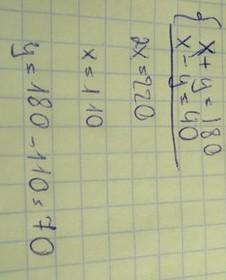 { x + y = 180
x - y = 40
2x = 220
x = 110
y = 180 - 110 = 70